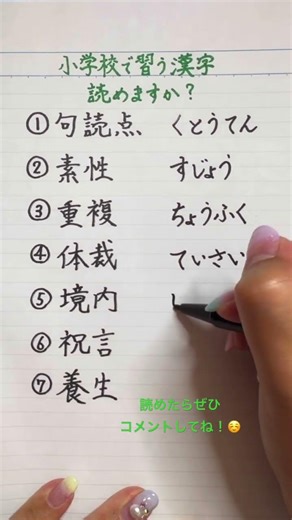 小学校で習う漢字
読めますか？
①句読点 くとうてん
②素性 すじょう
③重複 ちょうふく
④体裁 ていさい
⑤境内
⑥祝言
⑦養生
読めたらぜひ
コメントしてね！☺️